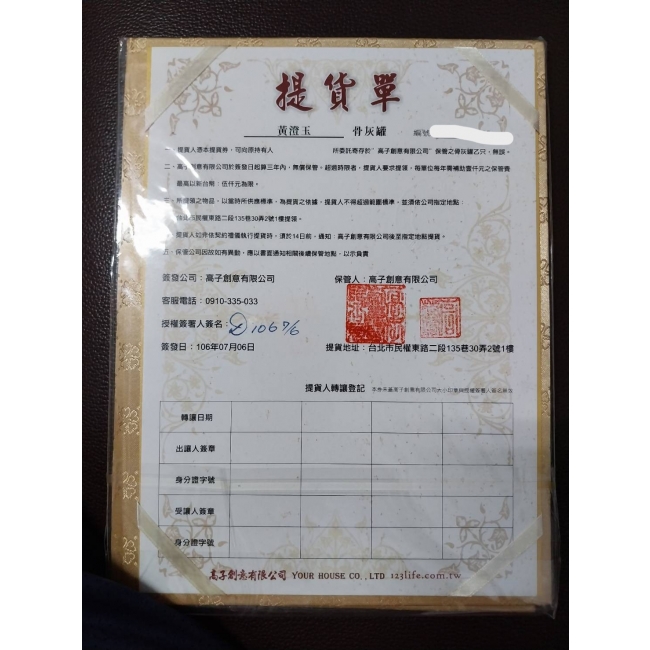 提貨單
黃澄玉 骨灰罐 編號
一、提貨人憑本提貨券，可向原持有人 所委託寄存於"高子創意有限公司"保管之骨灰罐乙只，無誤。
二、高子創意有限公司於簽發日起算三年內，無償保管。超過時限者，提貨人要求提領，每單位每年需補助壹仟元之保管費
最高以新台幣：伍仟元為限。
三、所提領之物品，以當時所供應標準，為提貨之依據，提貨人不得超過範圍標準，並須依公司指定地點：
台北市民權東路二段135巷30弄2號1樓提領。
提貨人如非依契約禮儀執行提貨時，須於14日前，通知：高子創意有限公司後至指定地點提貨。
五、保管公司因故如有異動，應以書面通知相關後續保管地點，以示負責
簽發公司：高子創意有限公司 保管人：高子創意有限公司
客服電話：0910-335-033
授權簽署人簽名： 1067/6
簽發日：106年07月06日 提貨地址：台北市民權東路二段135巷30弄2號1樓
提貨人轉讓登記
轉讓日期
出讓人簽章
身分證字號
受讓人簽章
身分證字號
高子創意有限公司 YOUR HOUSE CO., LTD 123life.com.tw